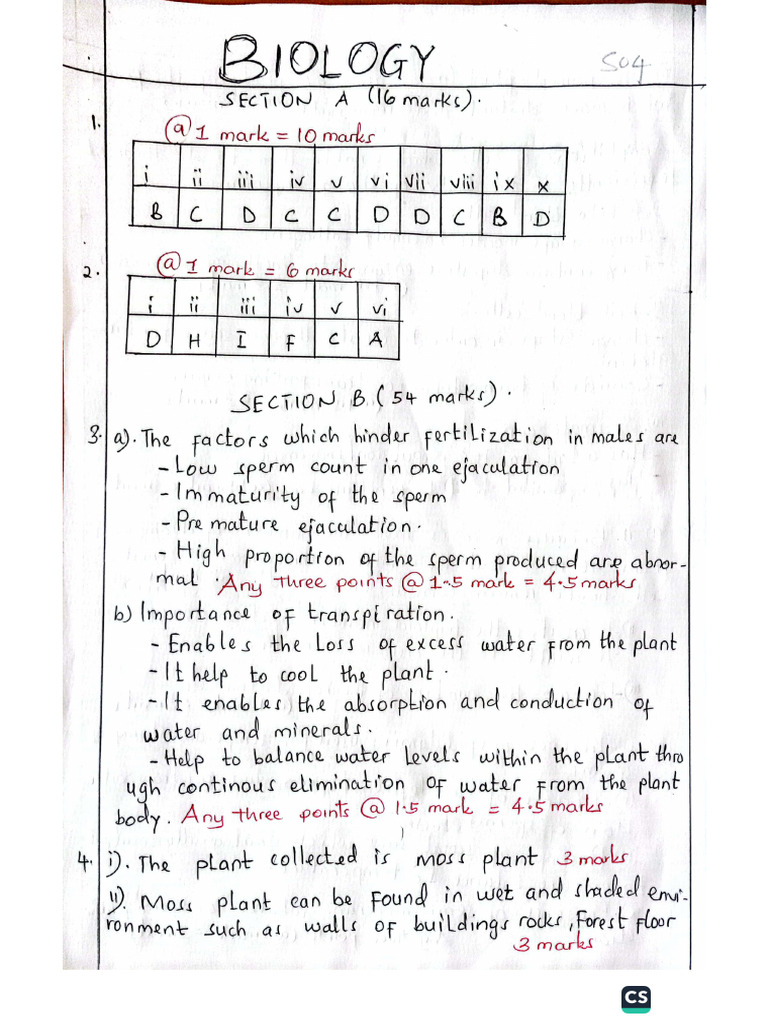 BIOLOGY S04
SECTION A (16 marks).
1. @ 1 mark = 10 marks
i ii iii iv v vi vii viii ix x
B C D C C D D C B D
2. @ 1 mark = 6 marks
i ii iii iv v vi
D H I F C A
SECTION B (54 marks).
3. a). The factors which hinder fertilization in males are
- Low sperm count in one ejaculation
- Immaturity of the sperm
- Pre mature ejaculation.
- High proportion of the sperm produced are abnor-
mal. Any three points @ 1.5 mark = 4.5 marks
b) Importance of transpiration.
- Enables the Loss of excess water from the plant
- It help to cool the plant.
- It enables the absorption and conduction of
water and minerals.
- Help to balance water levels within the plant thro
ugh continous elimination of water from the plant
body. Any three points @ 1.5 mark = 4.5 marks
4. i). The plant collected is moss plant 3 marks
ii). Moss plant can be found in wet and shaded envi-
ronment such as walls of buildings rocks, Forest floor
3 marks
CS